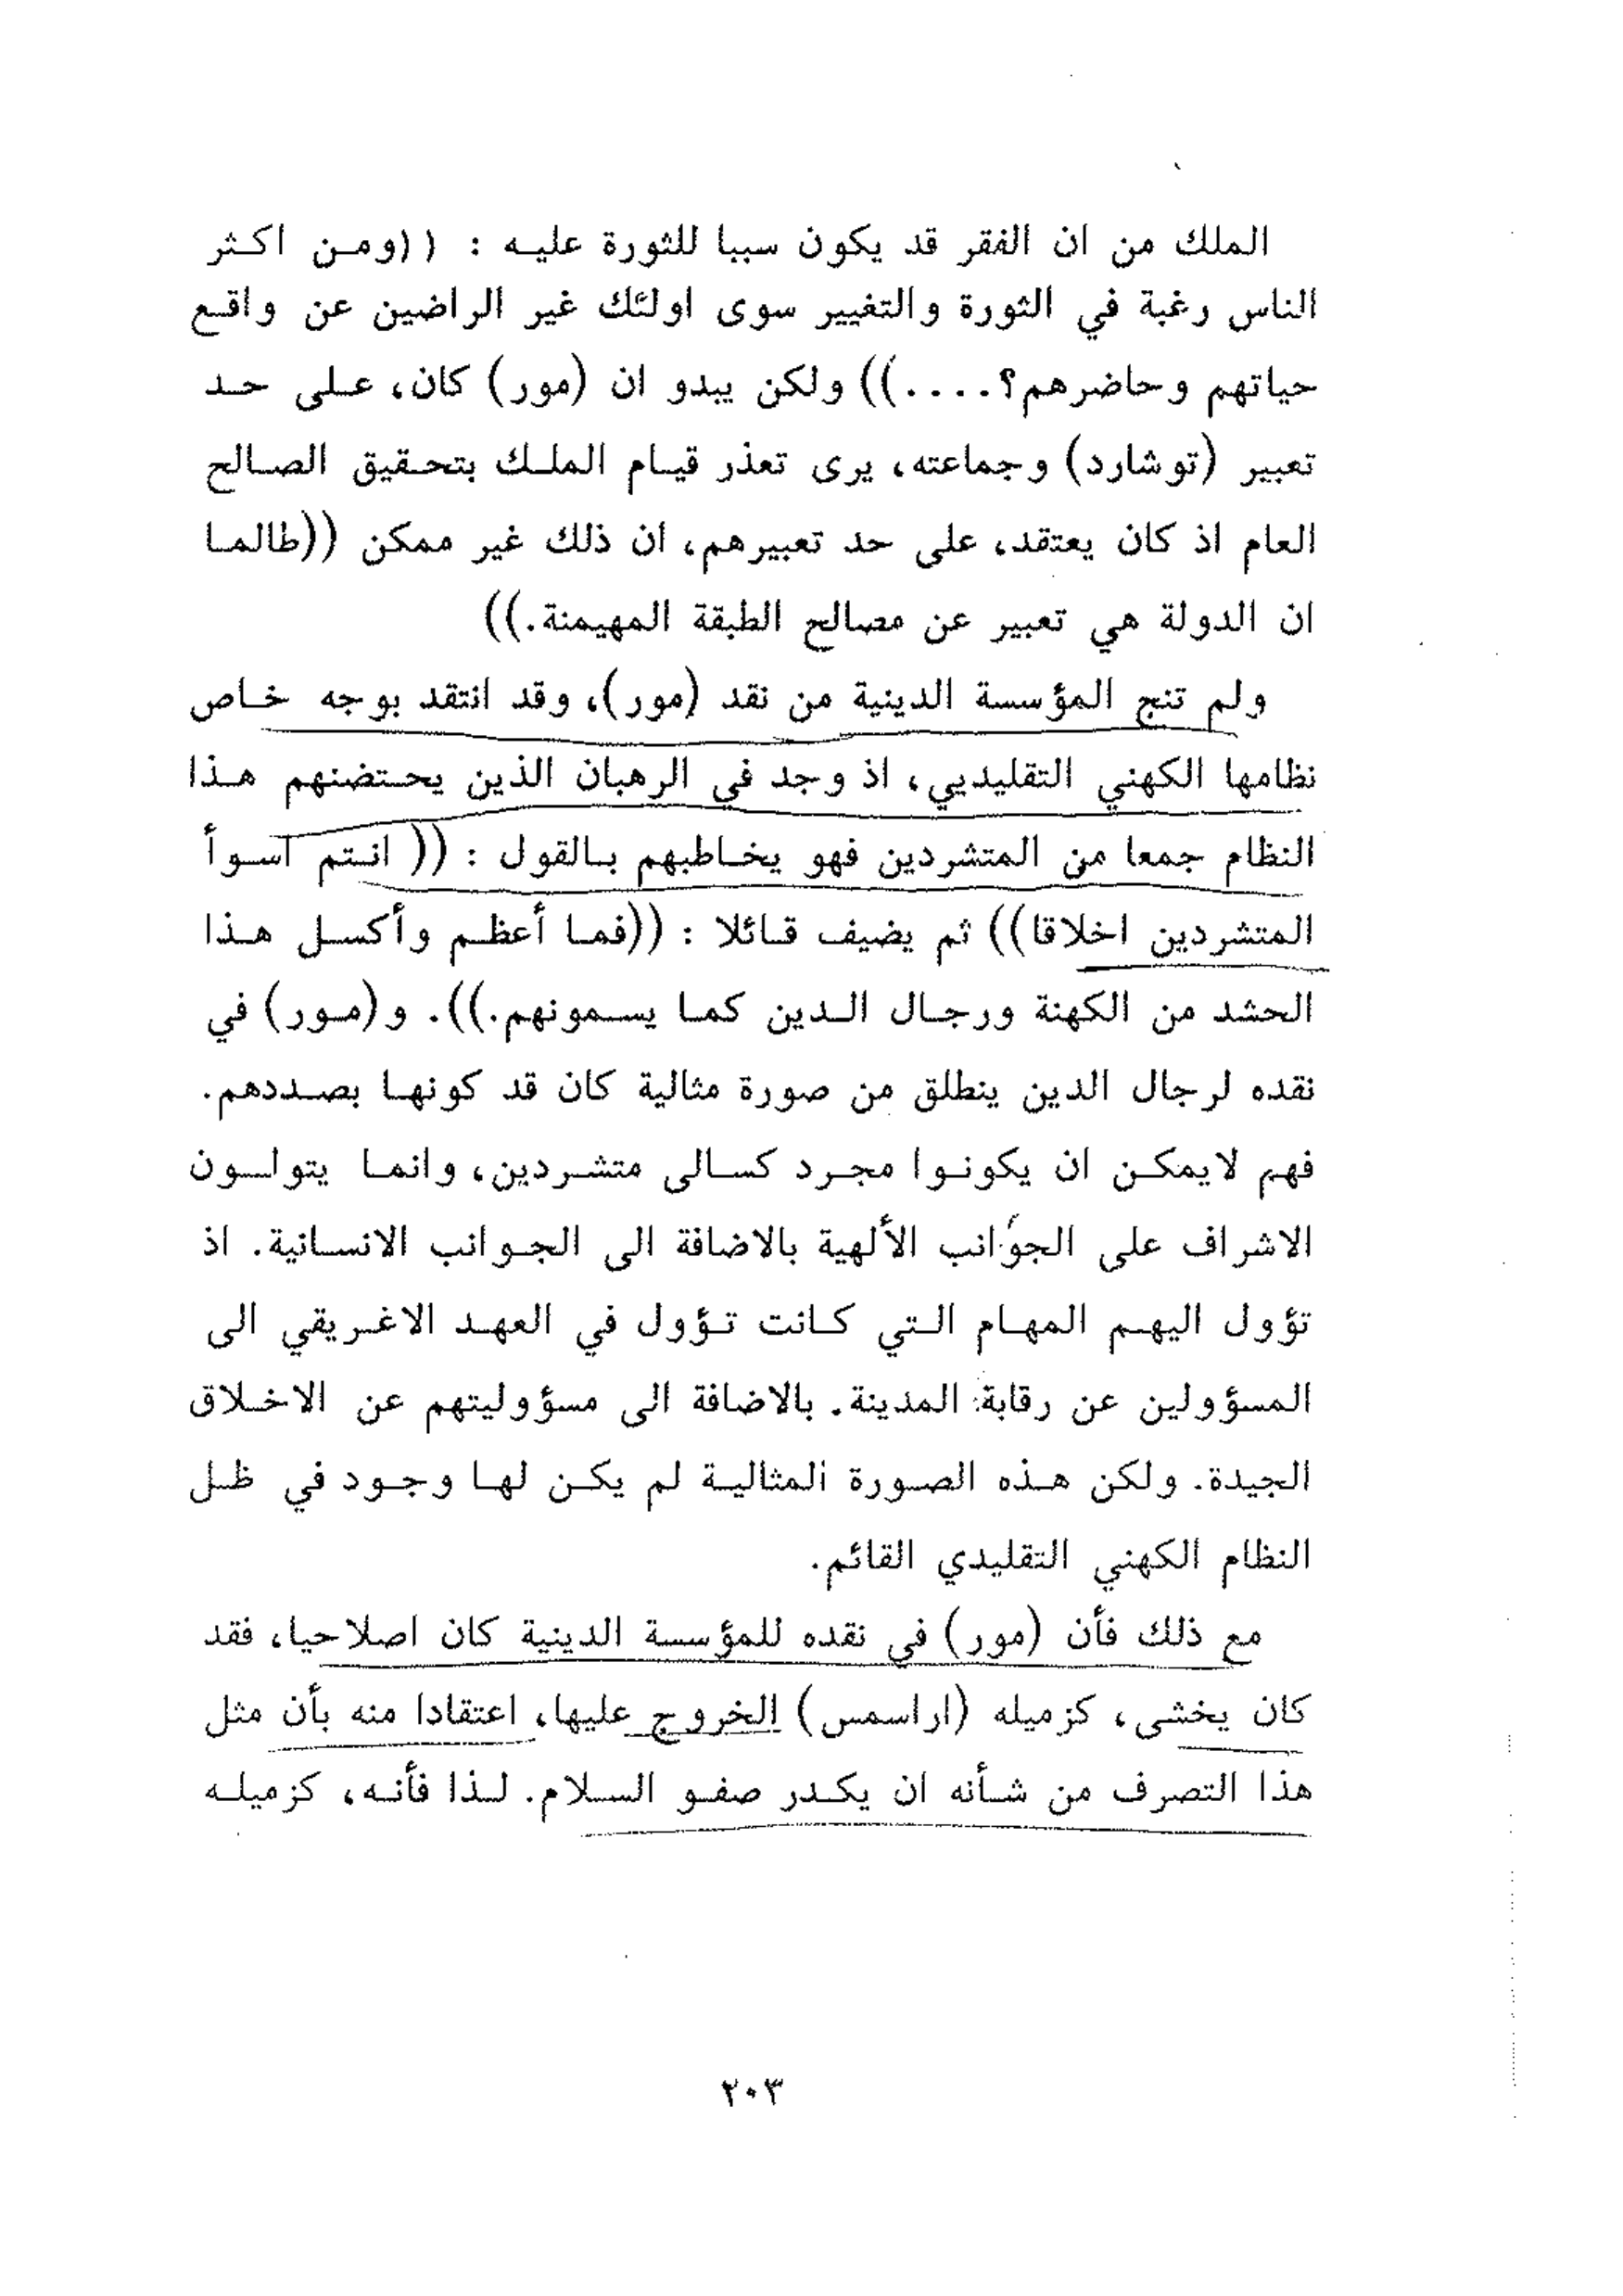 الملك من ان الفقر قد يكون سببا للثورة عليه : ((ومن اكثر
الناس رغبة في الثورة والتغيير سوى اولئك غير الراضين عن واقع
حياتهم وحاضرهم؟....)) ولكن يبدو ان (مور) كان، على حد
تعبير (توشارد) وجماعته، يرى تعذر قيام الملك بتحقيق الصالح
العام اذ كان يعتقد، على حد تعبيرهم، ان ذلك غير ممكن ((طالما
ان الدولة هي تعبير عن مصالح الطبقة المهيمنة.))
ولم تنج المؤسسة الدينية من نقد (مور)، وقد انتقد بوجه خاص
نظامها الكهني التقليديي، اذ وجد في الرهبان الذين يحتضنهم هذا
النظام جمعا من المتشردين فهو يخاطبهم بالقول : (( انتم اسوأ
المتشردين اخلاقا)) ثم يضيف قائلا : ((فما أعظم وأكسل هذا
الحشد من الكهنة ورجال الدين كما يسمونهم.)). و(مور) في
نقده لرجال الدين ينطلق من صورة مثالية كان قد كونها بصددهم.
فهم لايمكن ان يكونوا مجرد كسالى متشردين، وانما يتولون
الاشراف على الجوانب الألهية بالاضافة الى الجوانب الانسانية. اذ
تؤول اليهم المهام التي كانت تؤول في العهد الاغريقي الى
المسؤولين عن رقابة المدينة. بالاضافة الى مسؤوليتهم عن الاخلاق
الجيدة. ولكن هذه الصورة المثالية لم يكن لها وجود في ظل
النظام الكهني التقليدي القائم.
مع ذلك فأن (مور) في نقده للمؤسسة الدينية كان اصلاحيا، فقد
كان يخشى، كزميله (اراسمس) الخروج عليها، اعتقادا منه بأن مثل
هذا التصرف من شأنه ان يكدر صفو السلام. لذا فأنه، كزميله
٢٠٣